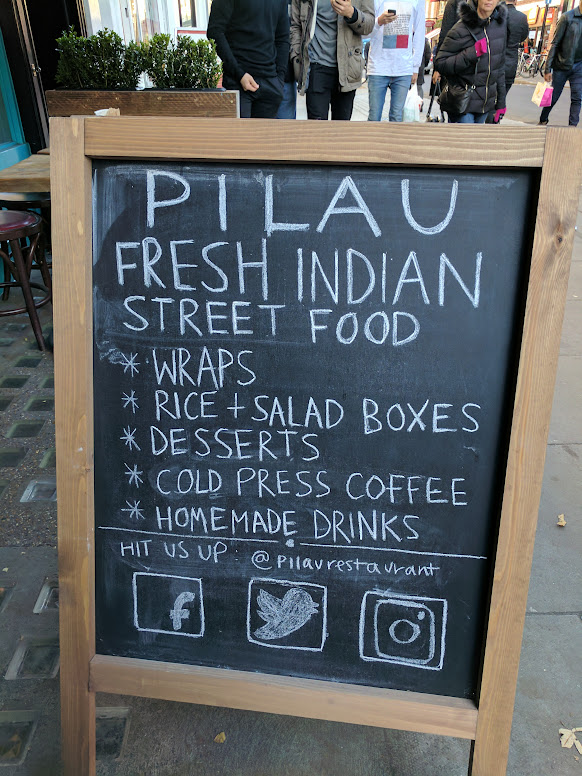 PILAU
FRESH INDIAN
STREET FOOD
* WRAPS
* RICE + SALAD BOXES
* DESSERTS
* COLD PRESS COFFEE
* HOMEMADE DRINKS
HIT US UP: @pilaurestaurant
f